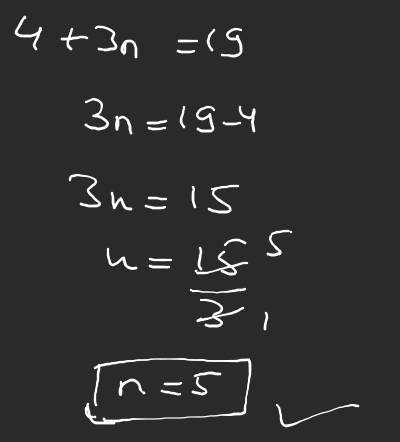 4 + 3n = 19
3n = 19 - 4
3n = 15
n = 15/3 5 1
n = 5